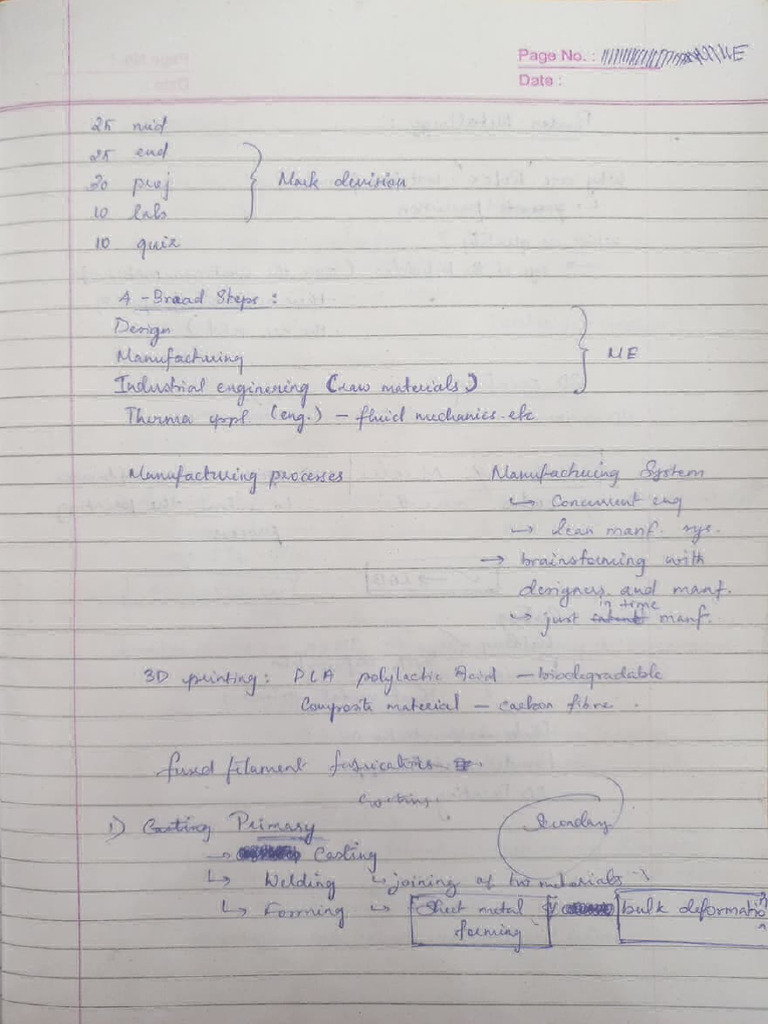 Page No. :
Date :
25 mid
25 end
30 proj } Mark division
10 labs
10 quiz
4 - Broad Steps :
Design
Manufacturing } ME
Industrial enginering (raw materials)
Therma appl (eng.) – fluid mechanics etc
Manufacturing processes
Manufacturing System
↳ Concurrent eng
↳ lean manf. sys.
→ brainstorming with
designers and manf.
↳ just in time manf.
3D printing : PLA polylactic Acid – biodegradable
Composite material – carbon fibre .
fused filament fabrication
1) Casting Primary
Secondary
→ Casting
↳ Welding ↳ joining of two materials
↳ Forming ↳ Sheet metal forming bulk deformation